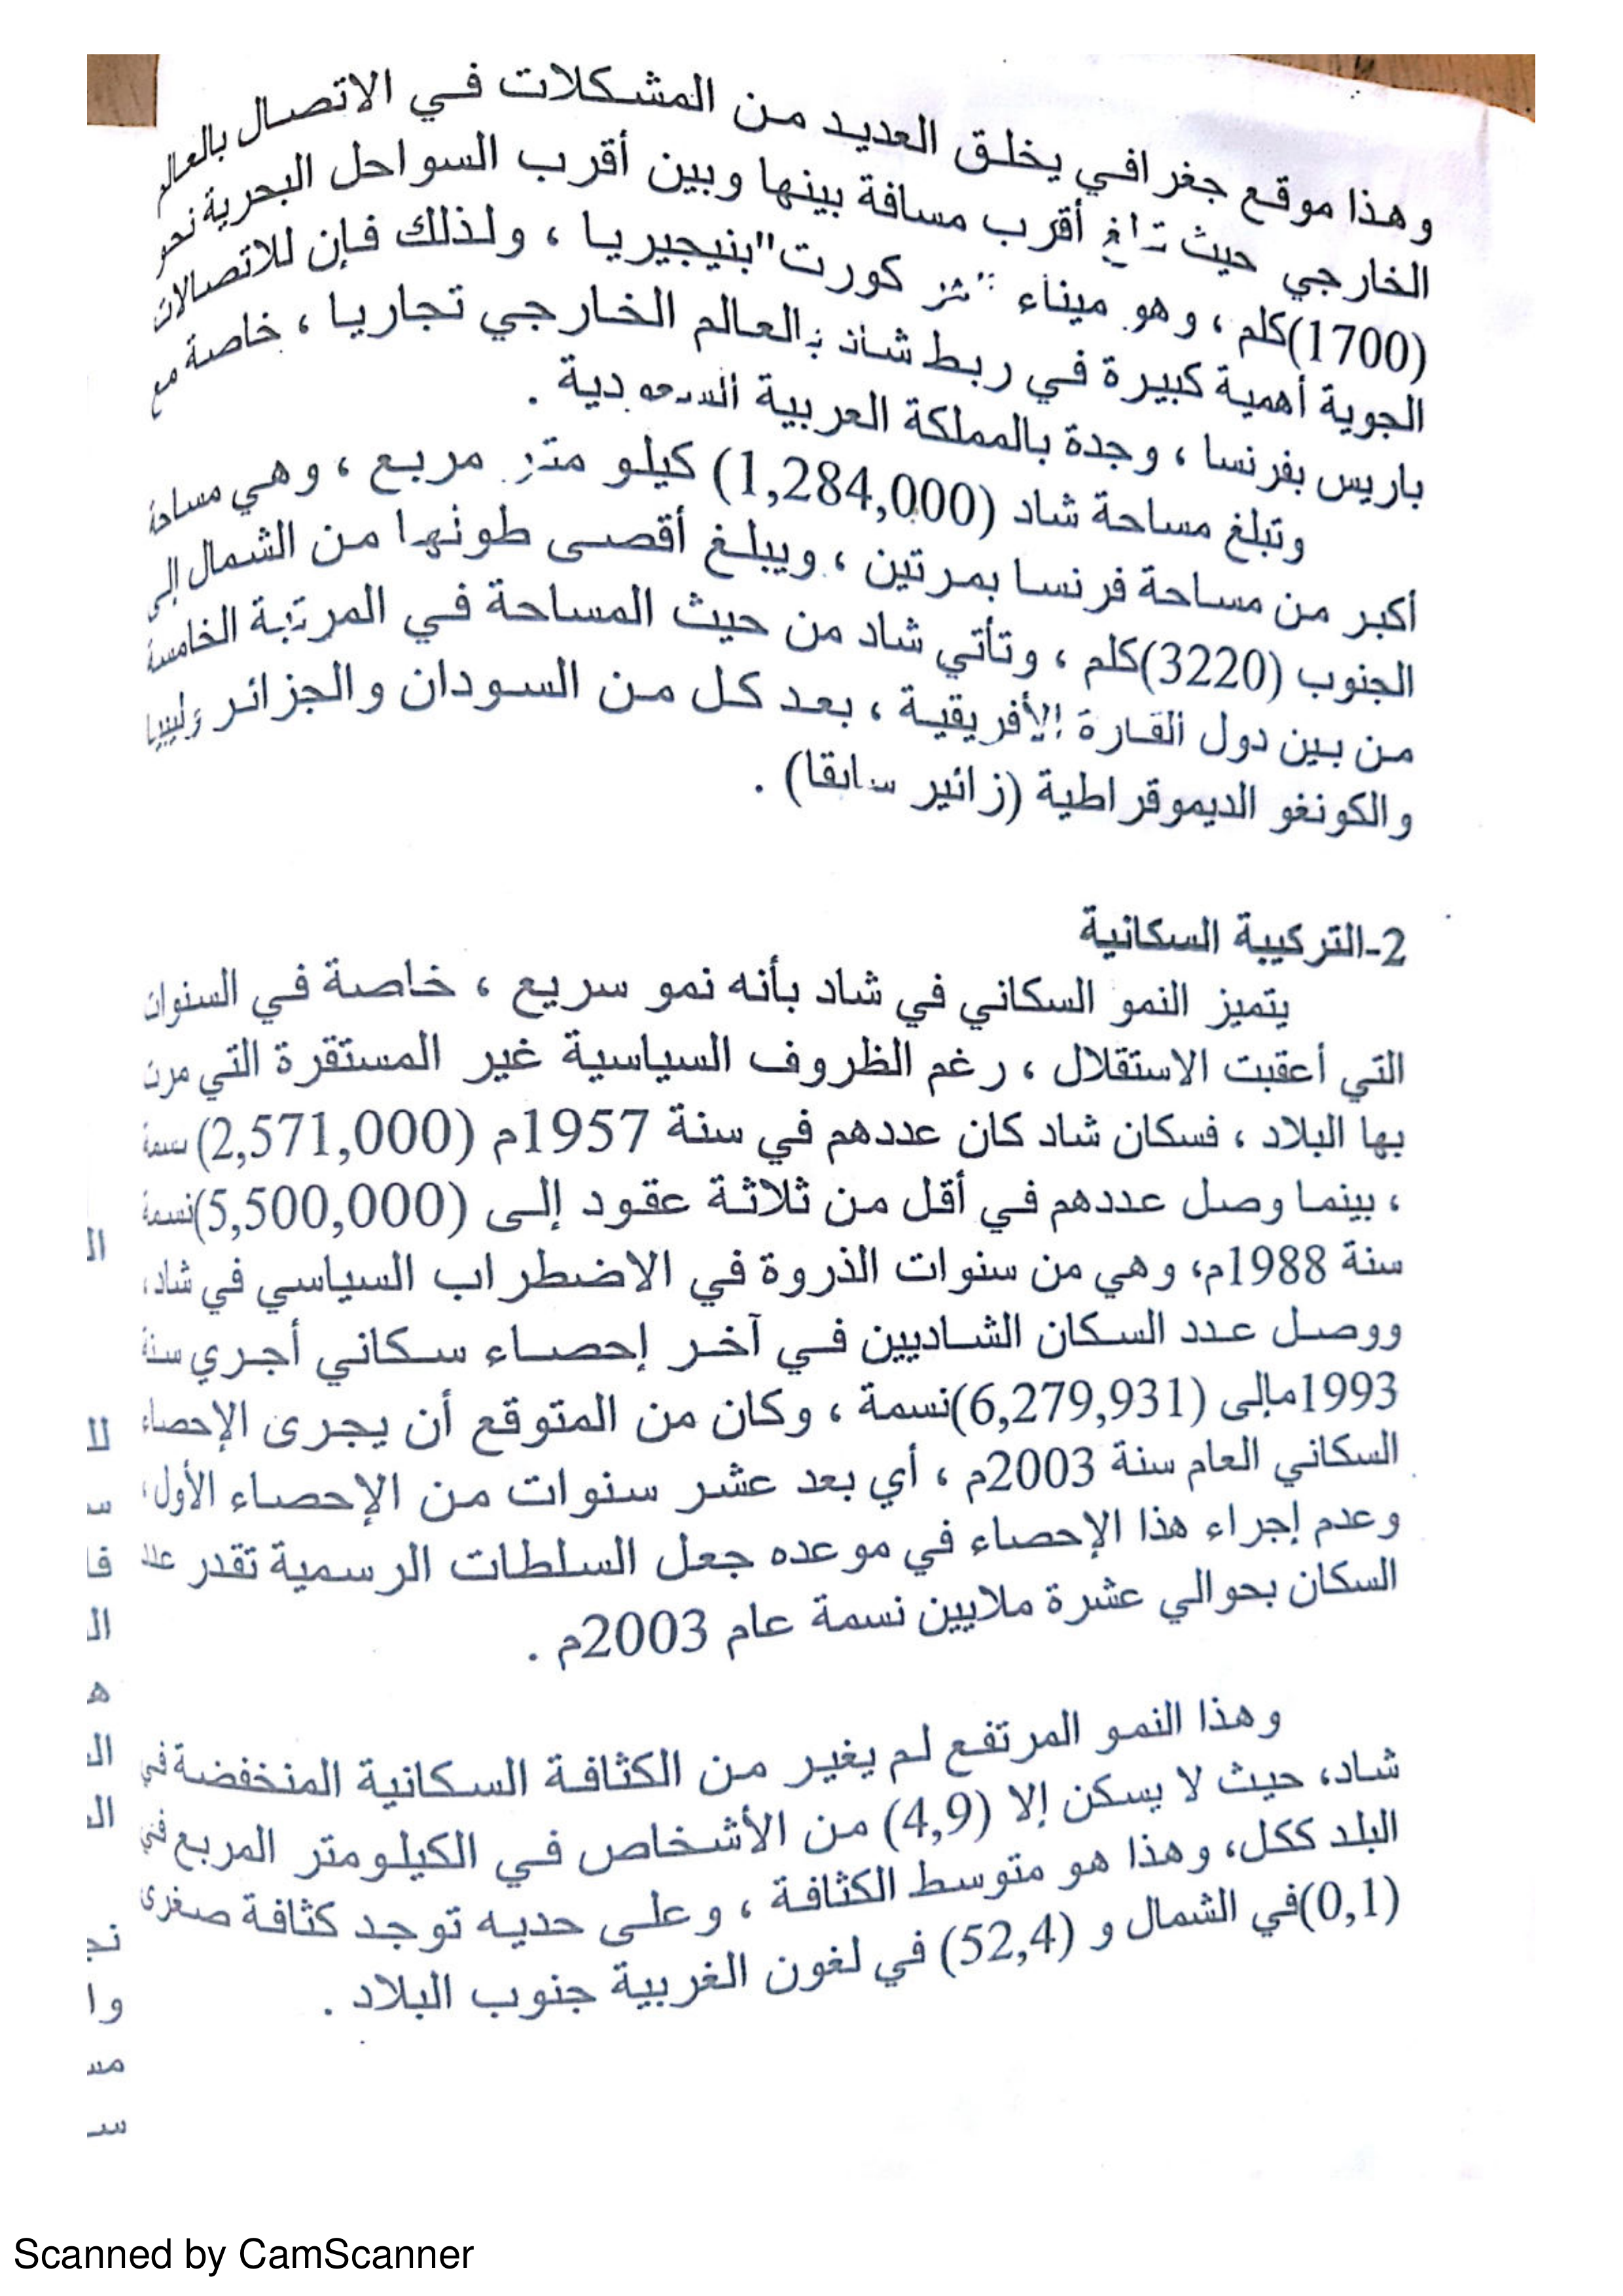 وهذا موقع جغرافي يخلق العديد من المشكلات في الاتصال بالعالم
الخارجي حيث أقرب مسافة بينها وبين أقرب السواحل البحرية نحو
(1700)كلم ، وهو ميناء كورت"بنيجيريا ، ولذلك فإن للاتصالات
الجوية أهمية كبيرة في ربط شاد بالعالم الخارجي تجاريا ، خاصة مع
باريس بفرنسا ، وجدة بالمملكة العربية السعودية .
وتبلغ مساحة شاد (1,284,000) كيلو متر مربع ، وهي مساحة
أكبر من مساحة فرنسا بمرتين ، ويبلغ أقصى طولها من الشمال إلى
الجنوب (3220)كلم ، وتأتي شاد من حيث المساحة في المرتبة الخامسة
من بين دول القارة الأفريقية ، بعد كل من السودان والجزائر وليبيا
والكونغو الديموقراطية (زائير سابقا) .
2-التركيبة السكانية
يتميز النمو السكاني في شاد بأنه نمو سريع ، خاصة في السنوات
التي أعقبت الاستقلال ، رغم الظروف السياسية غير المستقرة التي مرت
بها البلاد ، فسكان شاد كان عددهم في سنة 1957م (2,571,000) نسمة
، بينما وصل عددهم في أقل من ثلاثة عقود إلى (5,500,000)نسمة
سنة 1988م، وهي من سنوات الذروة في الاضطراب السياسي في شاد،
ووصل عدد السكان الشاديين في آخر إحصاء سكاني أجري سنة
1993مإلى (6,279,931)نسمة ، وكان من المتوقع أن يجرى الإحصاء
السكاني العام سنة 2003م ، أي بعد عشر سنوات من الإحصاء الأول،
وعدم إجراء هذا الإحصاء في موعده جعل السلطات الرسمية تقدر عدد
السكان بحوالي عشرة ملايين نسمة عام 2003م .
وهذا النمو المرتفع لم يغير من الكثافة السكانية المنخفضة في
شاد، حيث لا يسكن إلا (4,9) من الأشخاص في الكيلومتر المربع في
البلد ككل، وهذا هو متوسط الكثافة ، وعلى حديه توجد كثافة صغرى
(0,1)في الشمال و (52,4) في لغون الغربية جنوب البلاد .
Scanned by CamScanner